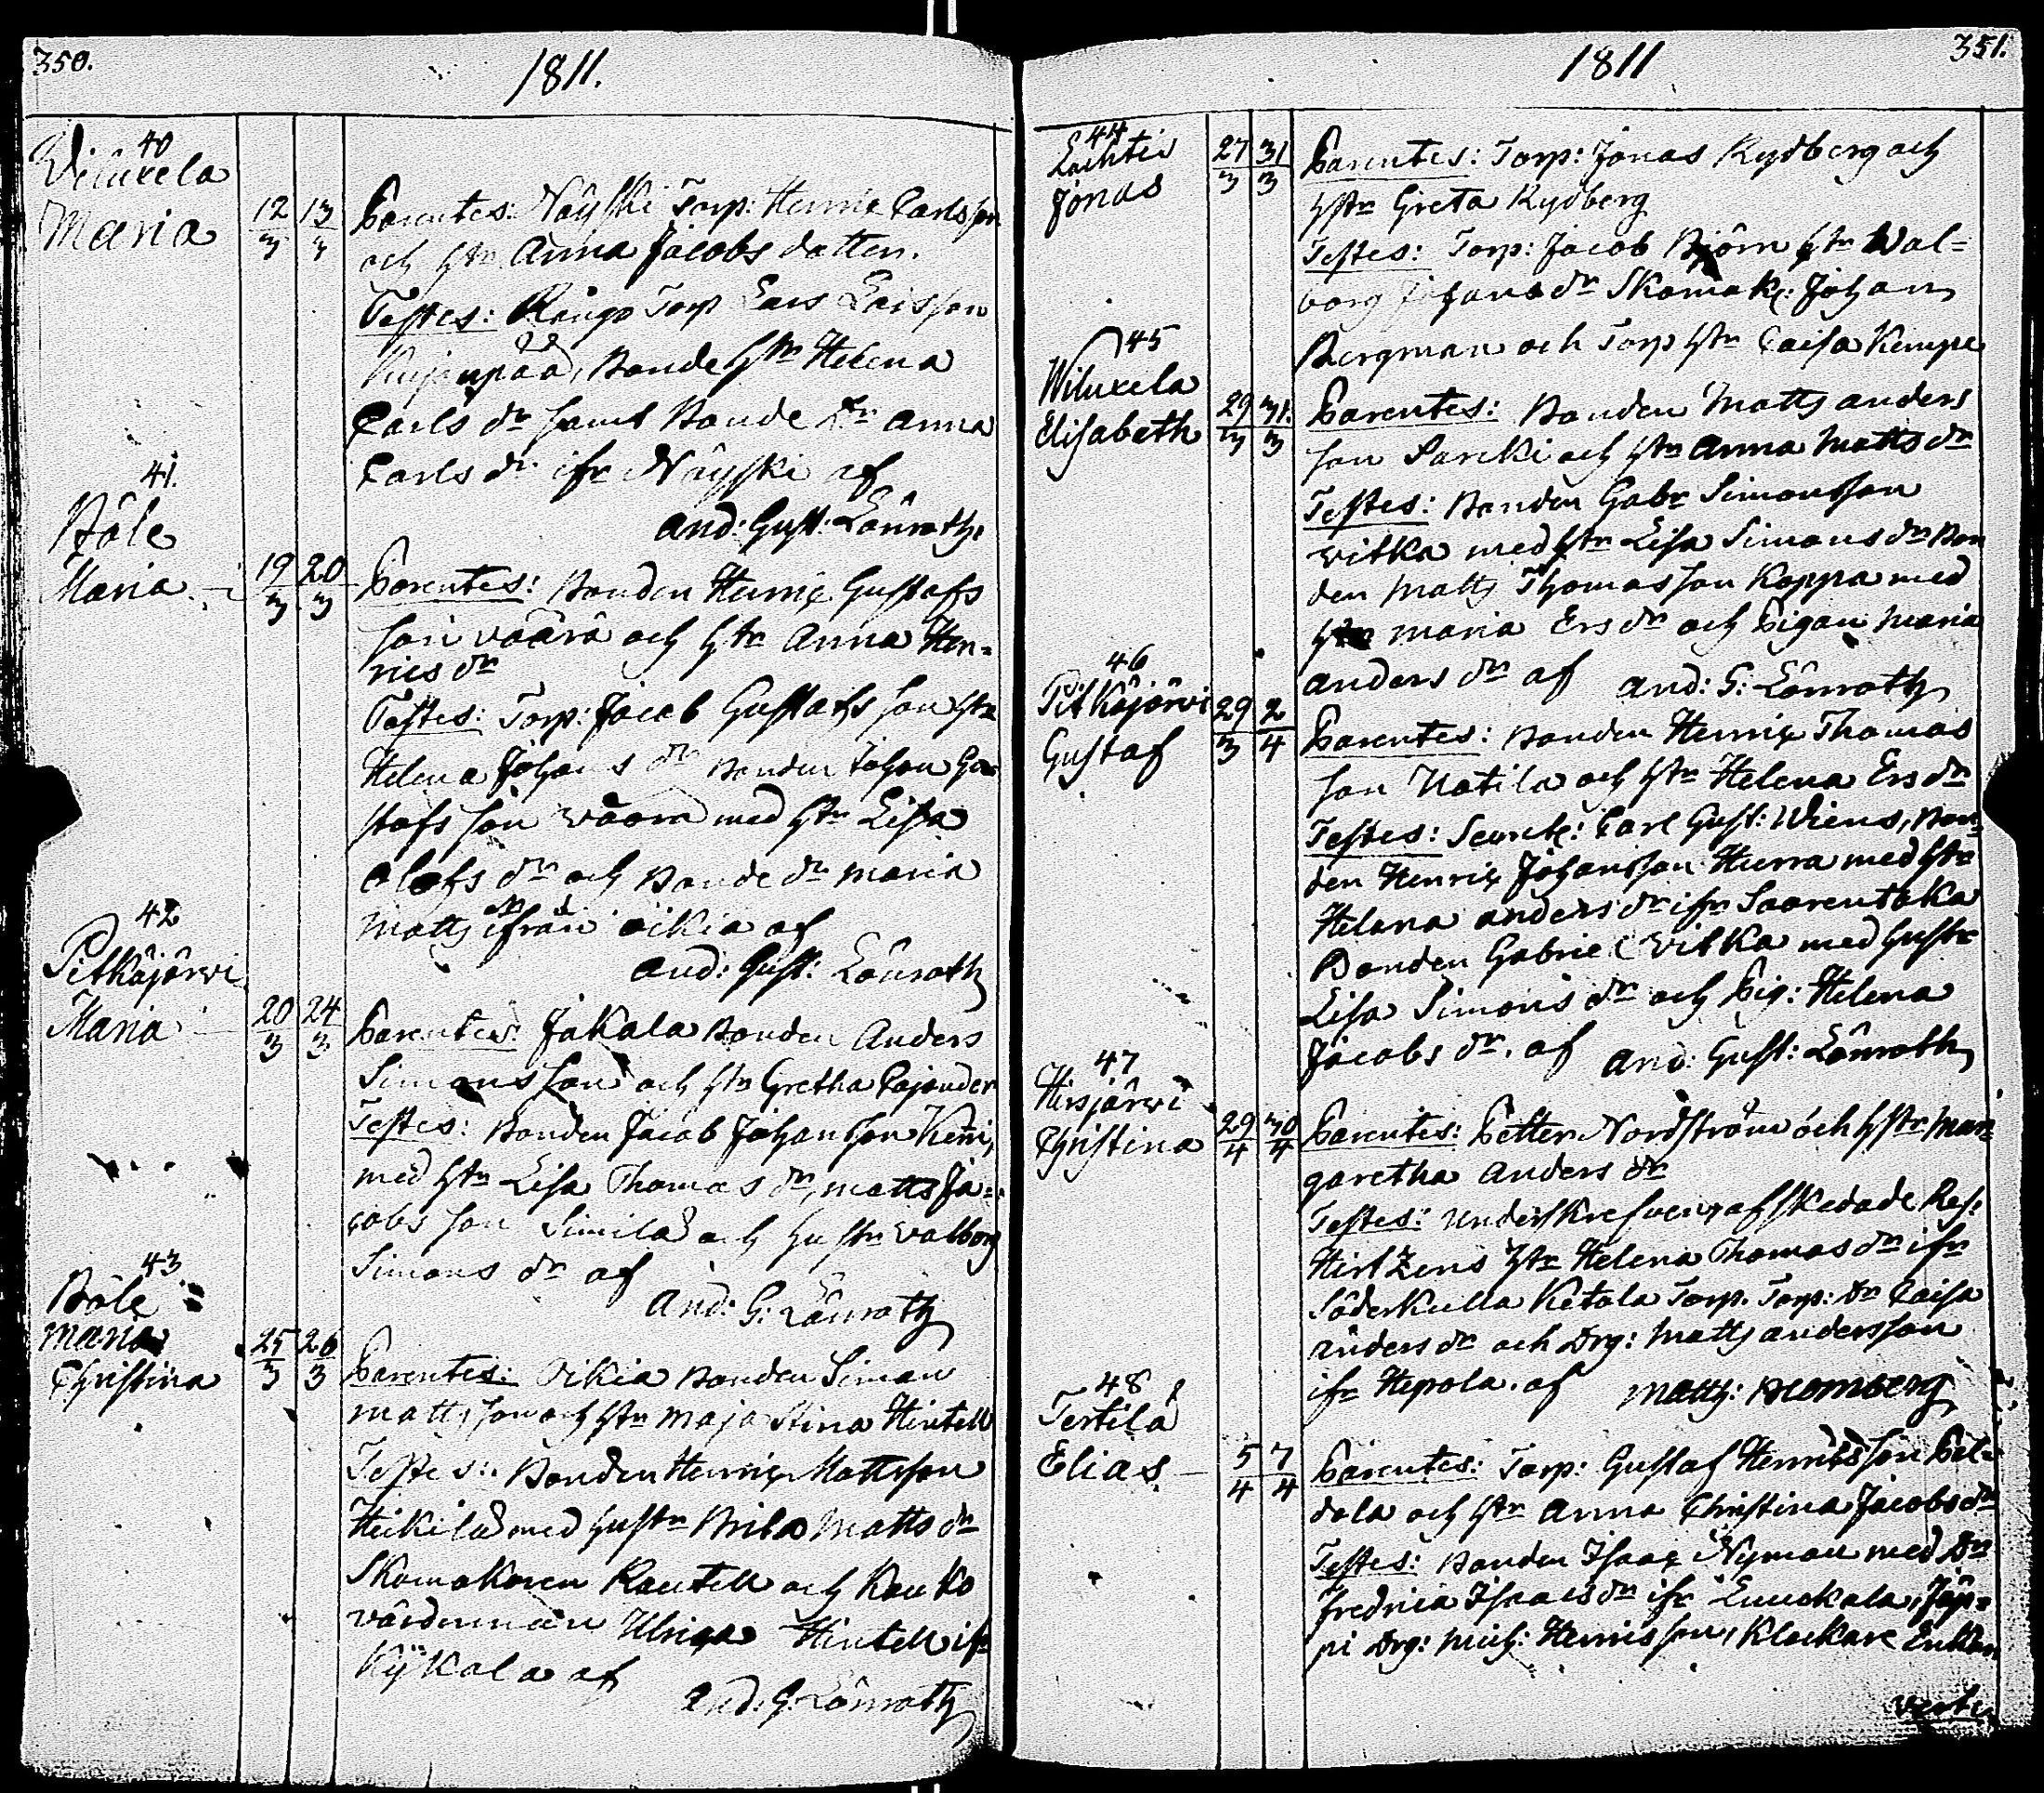 350.
1811.
40
Wiluxela
Maria
12/3 13/3
Parentes: Näyski Torp: Henric Carlsson
och hstr Anna Jacobs dotter.
Testes: Torp Lars Larsson
Bonde hstr Helena
Carls dr samt Bonde dr Anna
Carls dr ifr Näyski af
And: Gust: Lönroth.
41.
Böle
Maria
19/3 20/3
Parentes: Bonden Henric Gustafs
son Väärä och hstr Anna Hen=
rics dr
Testes: Torp: Jacob Gustafs son hstr
Helena Johans dr Bonden Johan Gu
stafs son Väärä med hstr Lisa
Olofs dr och Bonde dr Maria
Matts dr ifrån Oikia af
And: Gust: Lönroth
42
Pitkäjärvi
Maria
20/3 24/3
Parentes: Jakala Bonden Anders
Simons son och hstr Gretha Cajander
Testes: Bonden Jacob Johansson
med hstr Lisa Thomas dr, Matts Ja=
cobs son Simila och hustr Valborg
Simons dr af
And: G: Lönroth
43
Böle
Maria
Christina
25/3 26/3
Parentes: Oikia Bonden Simon
Mattsson och hstr Maja Stina Hintell
Testes: Bonden Henric Mattsson
Heikilä med hustr Brita Matts dr
Skomakaren Rautell och
Ulrica Hintell ifr
Kÿkala af
And: G: Lönroth
1811
351.
44
Lachtis
Jonas
27/3 31/3
Parentes: Torp: Jonas Rydberg och
hstr Greta Rydberg
Testes: Torp: Jacob Björn hstr Wal=
borg Johans dr Skomak: Johan
Bergman och Torp hstr Caisa Kempe
45
Wiluxela
Elisabeth
29/3 31./3
Parentes: Bonden Matts Anders
son Sarcki och hstr Anna Matts dr
Testes: Bonden Gabr Simonsson
Vitka med hstr Lisa Simons dr Bon
den Matts Thomasson Koppa med
hstr Maria Ers dr och Pigan Maria
Anders dr af And: G: Lönroth
46
Pitkäjärvi
Gustaf
29/3 2/4
Parentes: Bonden Henric Thomas
son Uotila och hstr Helena Ers dr
Testes: Carl Gust: Wiens, Bon=
den Henric Johansson Hurra med hstr
Helena Anders dr ifr Saarentaka
Bonden Gabriel Vitka med hustr
Lisa Simons dr och Pig: Helena
Jacobs dr. af And: Gust: Lönroth
47
Hirsjärvi
Christina
29/4 30/4
Parentes: Petter Nordström och hstr Mar=
garetha Anders dr
Testes: afskedade
Hirtzens hstr Helena Thomas dr ifr
Söderkulla Ketola Torp. Torp: dr Caisa
Anders dr och Drg: Matts Andersson
ifr Hepola. af Matth: Blomberg
48
Tertilä
Elias
5/4 7/4
Parentes: Torp: Gustaf Henricsson Pel=
dola och hstr Anna Christina Jacobs dr
Testes: Bonden Isaac Nyman med dr
Fredrica Isaacs dr ifr Jäp=
pi Drg: Mich: Henricsson, Klockare Enkan
verte